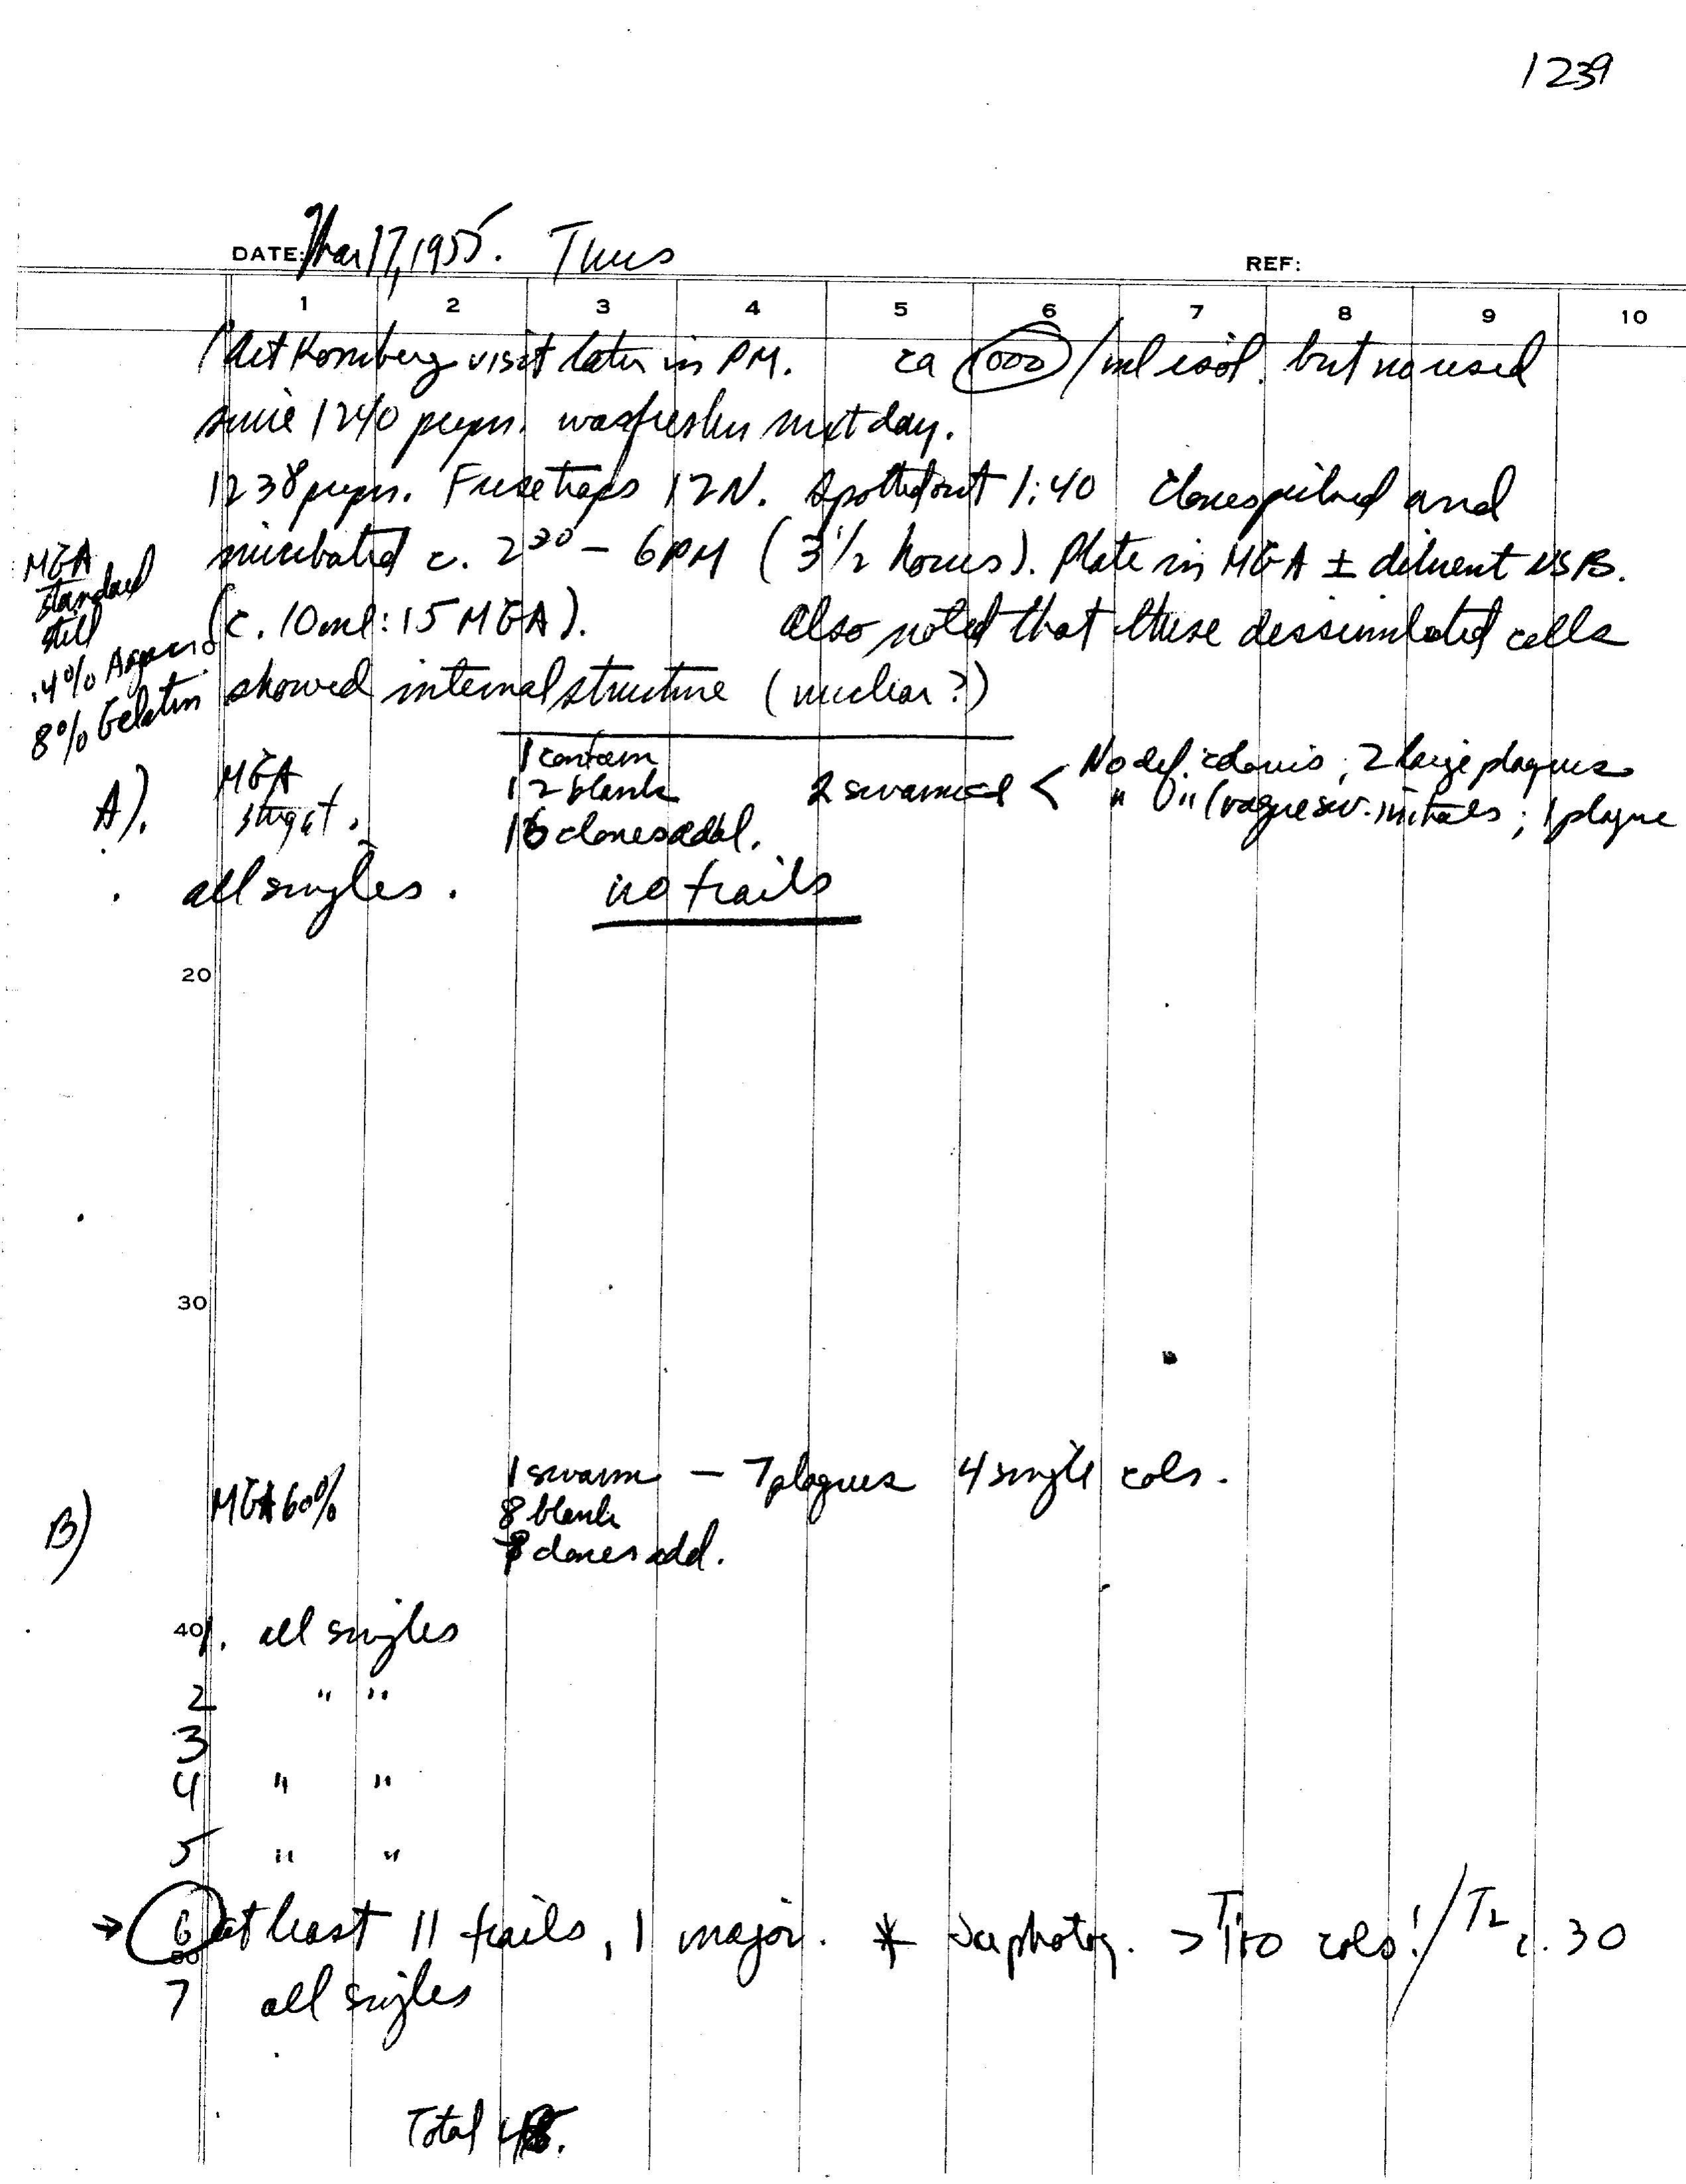 1239
DATE: Mar 17, 1955. Thus
REF:
1 2 3 4 5 6 7 8 9 10
(Art Kornberg visit later in PM. ca 1000 /ml isol. but no used
since 1240 prepn. was fresher next day.
1238 prepn. Fuse traps 12N. Spotted out 1:40 Clones picked and
incubated c. 2 30 – 6 PM (3 1/2 hours). Plate in MGA ± diluent
(c. 10 ml : 15 MGA). Also noted that these dessimilated cells
showed internal structure (nuclear?)
MGA
standard
still
.4% Agar
8% Gelatin
A). MGA
1 contam
12 blank
16 clones add.
2 swarmed < No def. colonies ; 2 large plaques
" " " (vague sw. initials ; 1 plaque
all singles. no trails
20
30
B) MGA 60%
1 swarm – 7 plaques 4 single cols.
8 blank
8 clones add.
40
1. all singles
2 " "
3
4 " "
5 " "
→ 6 at least 11 trails, 1 major. * See photog. > T1 100 cols! / T2 c. 30
50
7 all singles
Total 48.